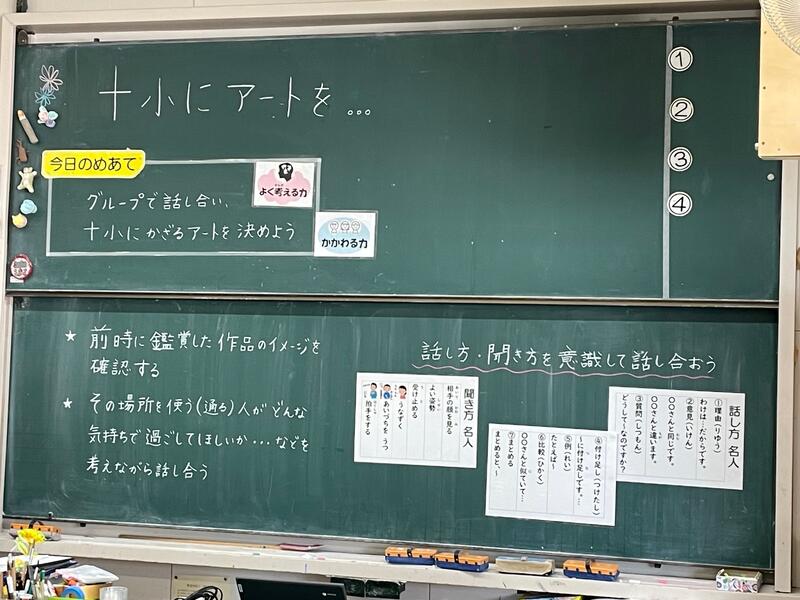 十小にアートを…
今日のめあて
グループで話し合い、
十小にかざるアートを決めよう
よく考える力
かかわる力
①
②
③
④
★ 前時に鑑賞した作品のイメージを
確認する
★ その場所を使う(通る)人がどんな
気持ちで過ごしてほしいか…などを
考えながら話し合う
話し方・聞き方を意識して話し合おう
聞き方 名人
相手の顔を見る
よい姿勢
受け止める
うなずく
あいづちを うつ
拍手をする
話し方 名人
①理由(りゆう)
わけは…だからです。
②意見(いけん)
〇〇さんと同じです。
〇〇さんと違います。
③質問(しつもん)
どうして~なのですか?
④付け足し(つけたし)
~に付け足しです。…
⑤例(れい)
たとえば~
⑥比較(ひかく)
〇〇さんと似ていて…
⑦まとめる
まとめると、~